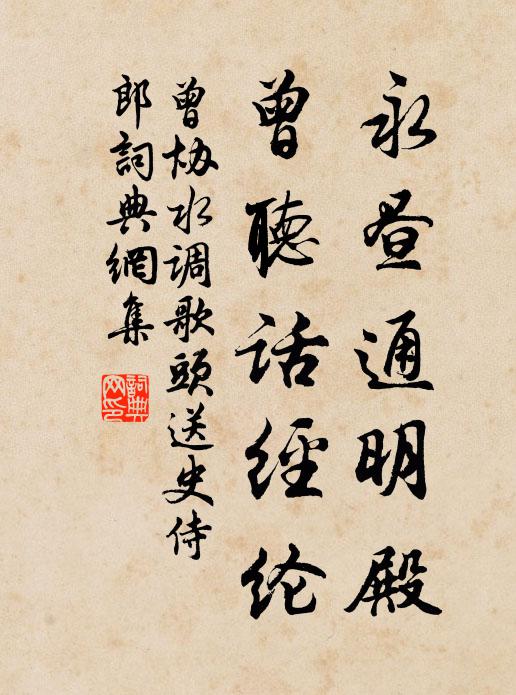 永昼通明殿
曾聽話經纶
曾协水调歌頭送史侍
郎詞典網集
詞典
网印